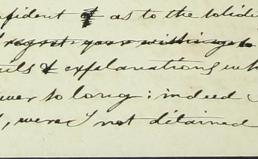 fident as to the solidi
regret your withinge to
ils & explanations wh
wer so long; indeed
, were I not detained